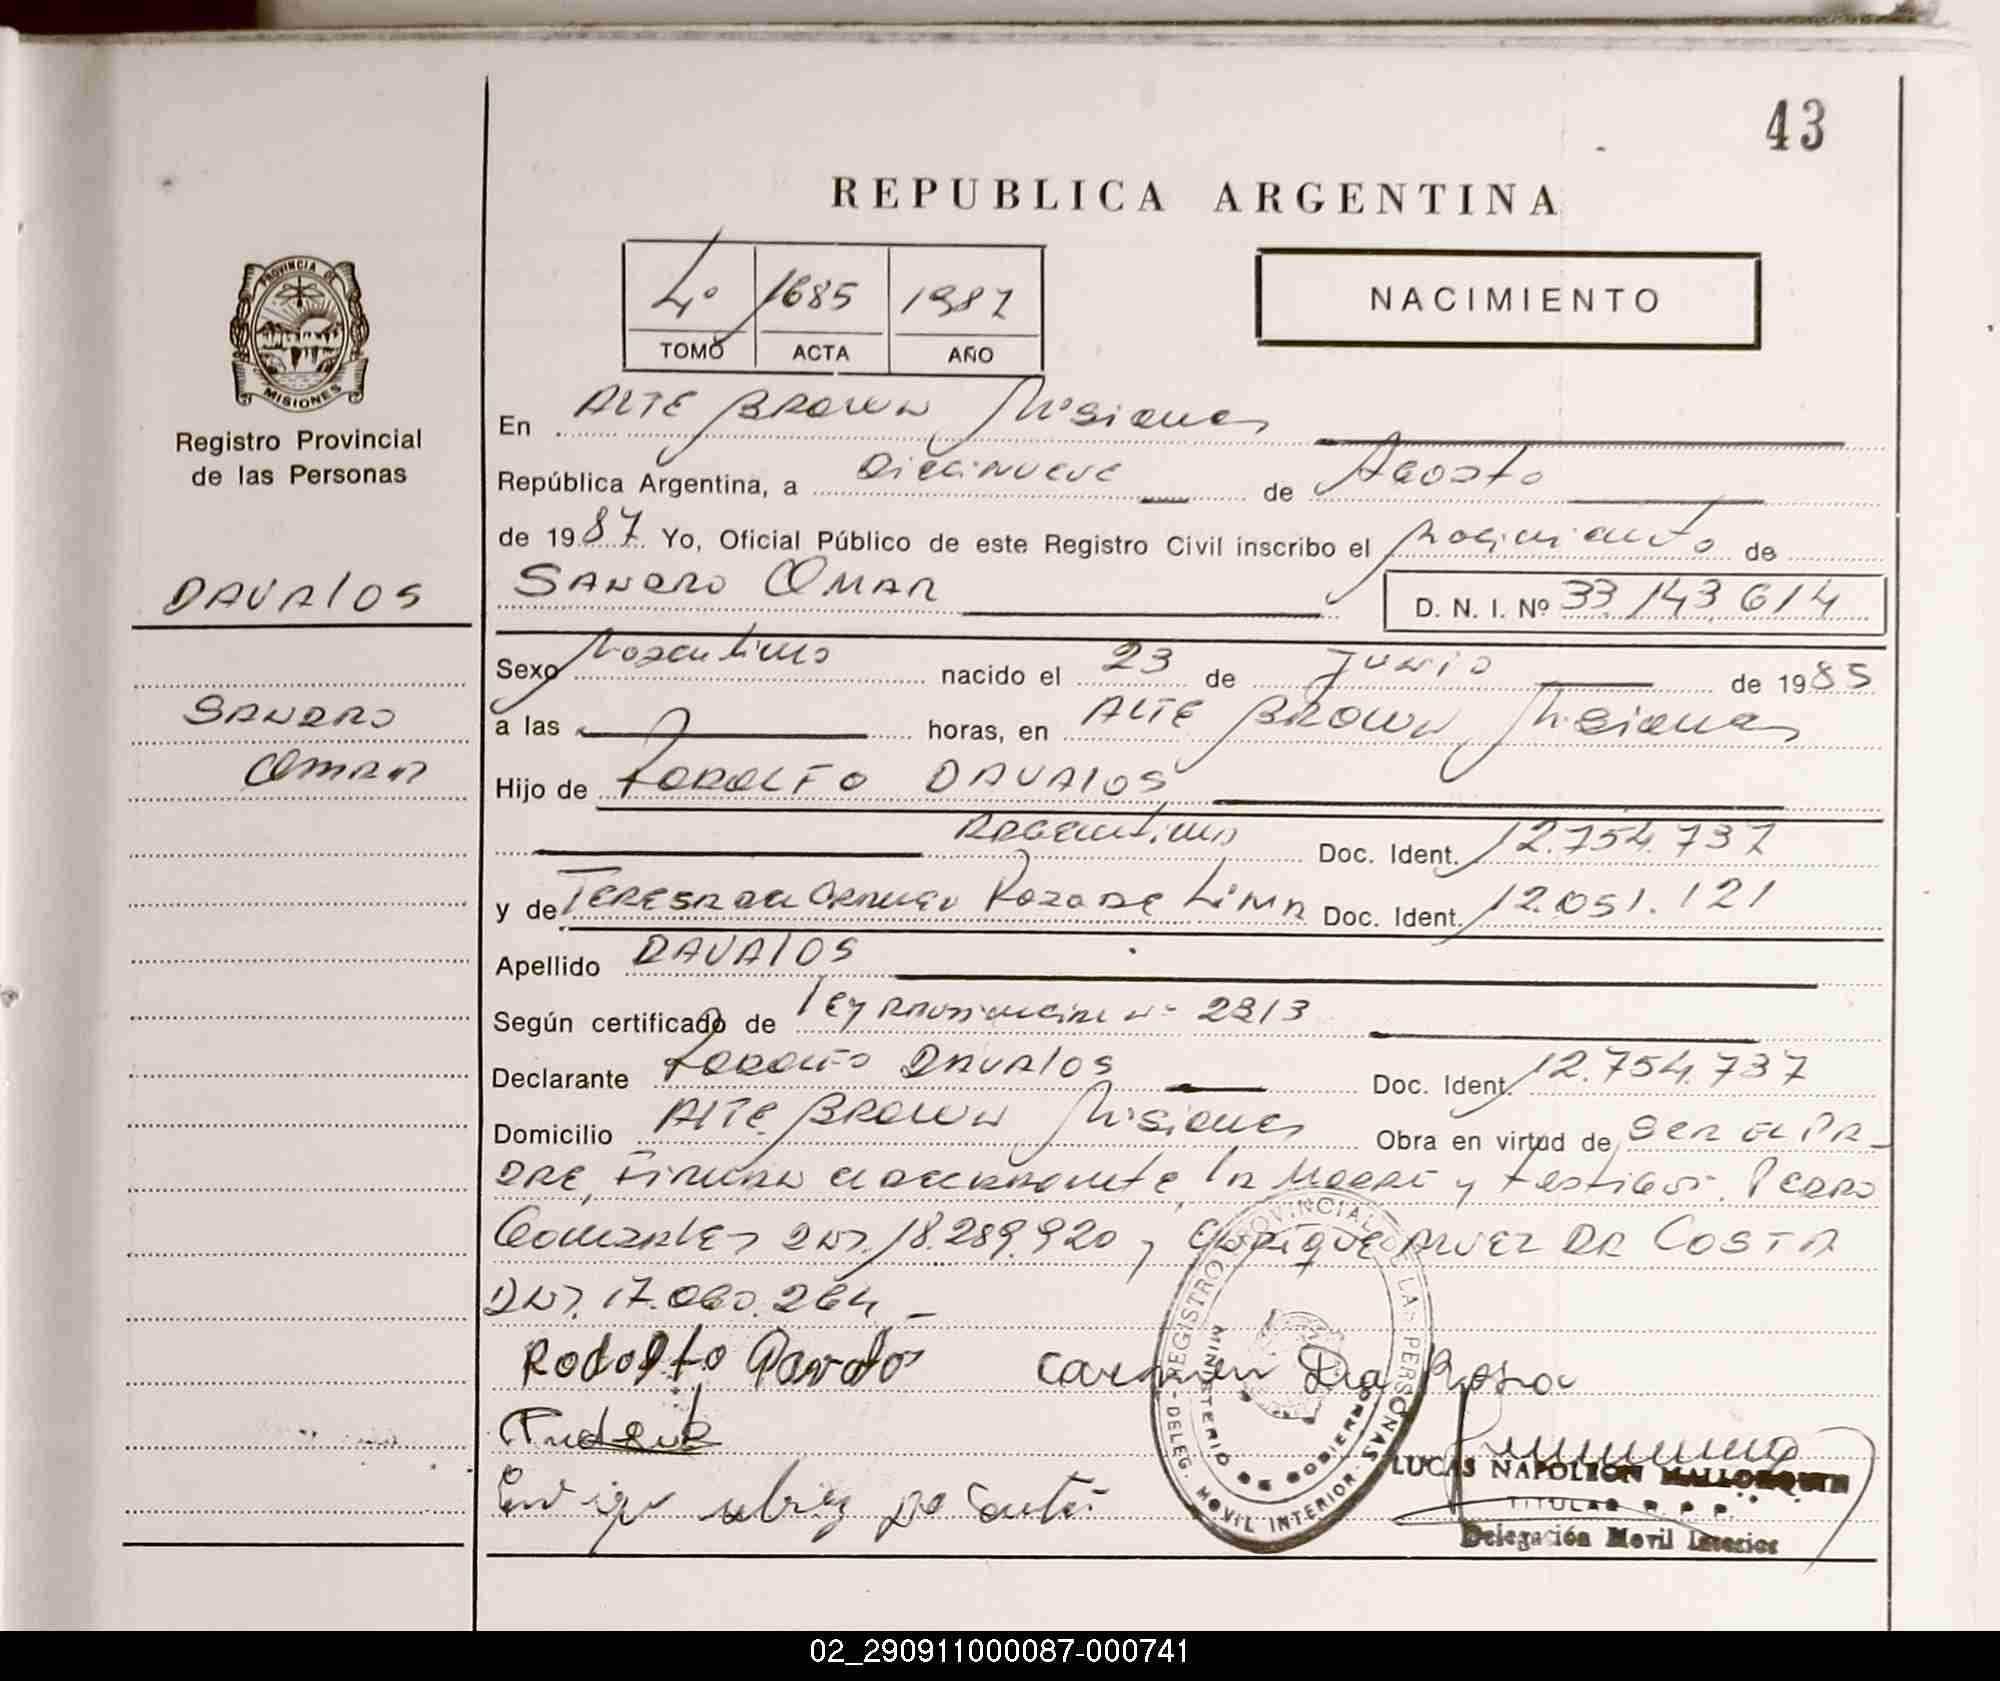 43
REPUBLICA ARGENTINA
4º 1685 1987
TOMO ACTA AÑO
NACIMIENTO
PROVINCIA DE
MISIONES
Registro Provincial
de las Personas
DAVALOS
SANDRO
OMAR
En ALTE BROWN Misiones
República Argentina, a Diecinueve de Agosto
de 1987 Yo, Oficial Público de este Registro Civil inscribo el nacimiento de
SANDRO OMAR D. N. I. Nº 33.143.614
Sexo Masculino nacido el 23 de Junio de 1985
a las horas, en ALTE BROWN Misiones
Hijo de RODOLFO DAVALOS
Argentino Doc. Ident. 12.754.737
y de TERESA del CARMEN ROZA DE LIMA Doc. Ident. 12.051.121
Apellido DAVALOS
Según certificado de Ley Provincial Nº 2313
Declarante RODOLFO DAVALOS Doc. Ident. 12.754.737
Domicilio ALTE BROWN Misiones Obra en virtud de SER EL PA-
DRE, Firman el declarante, la Madre y testigos: Pedro
Gonzales DNI. 18.289.920 y Enrique ALVEZ DA COSTA
DNI. 17.060.264 -
Rodolfo Davalos Carmen Da Rosa
REGISTRO PROVINCIAL DE LAS PERSONAS
MINISTERIO DE GOBIERNO
DELEG. MOVIL INTERIOR
LUCAS NAPOLEON MALLORQUIN
TITULAR R. P. P.
Delegación Movil Interior
02_290911000087-000741